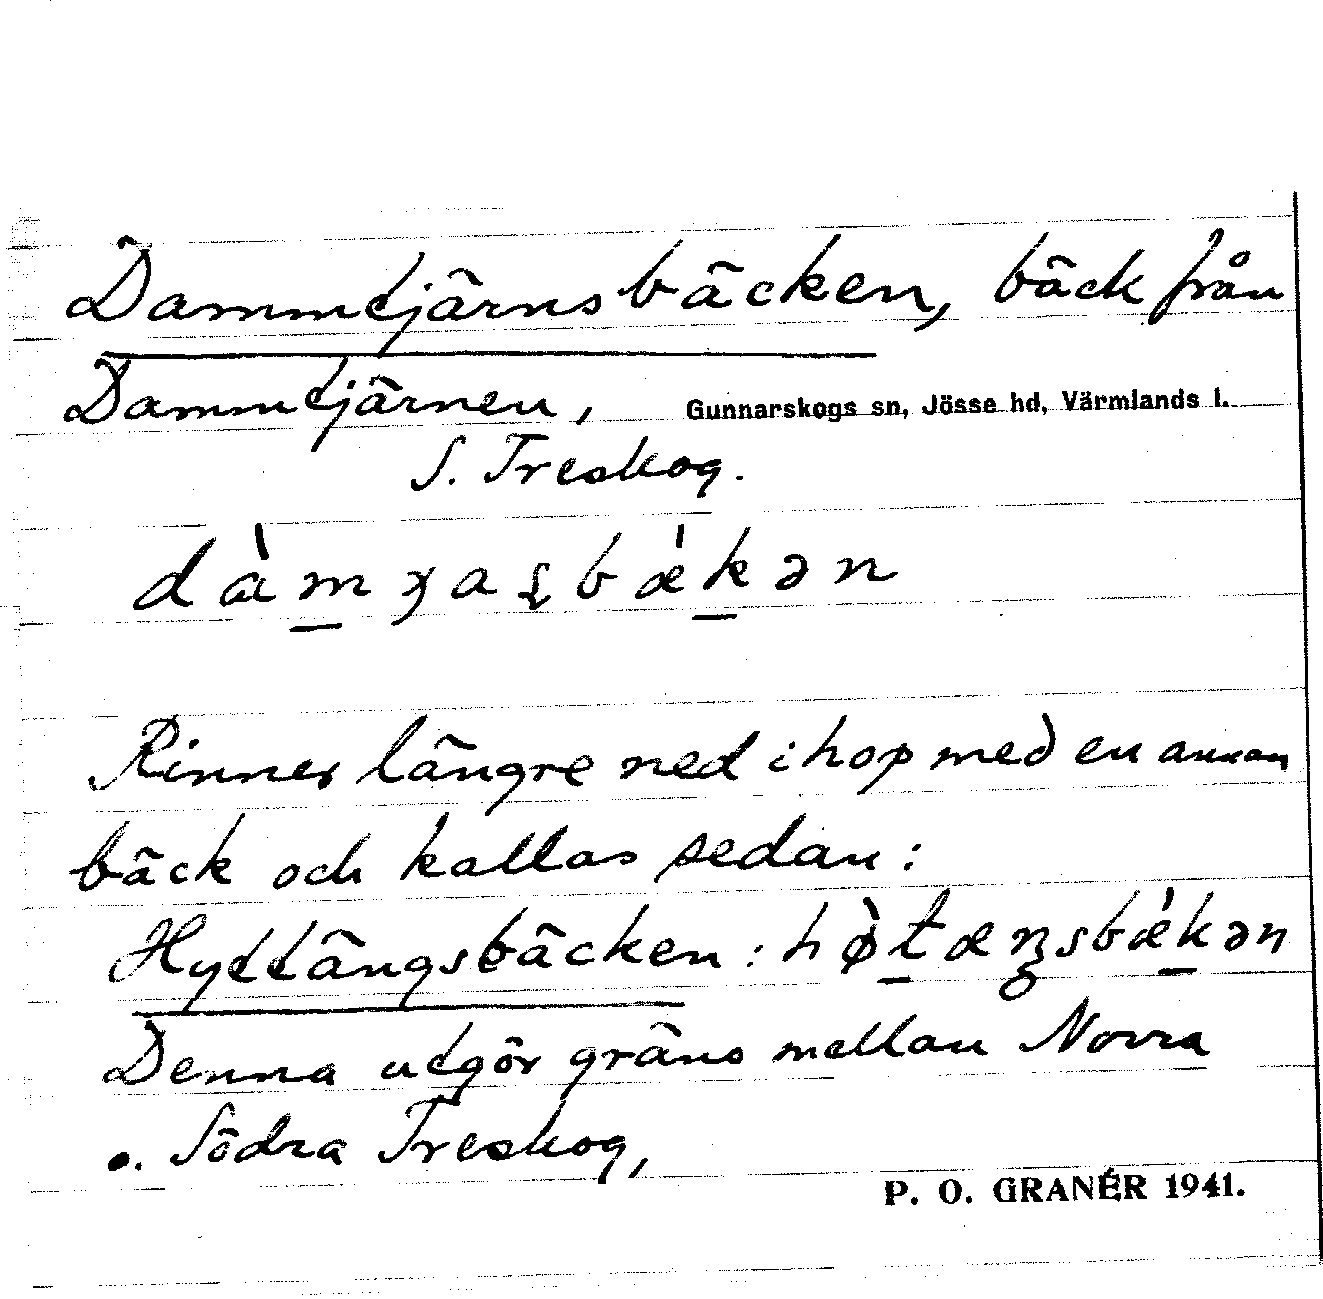 Dammtjärnsbäcken, bäck från
Dammtjärnen, Gunnarskogs sn, Jösse hd, Värmlands l.
S. Treskog.
Rinner längre ned ihop med en annan
bäck och kallas sedan:
Hyttängsbäcken:
Denna utgör gräns mellan Norra
o. Södra Treskog,
P. O. GRANÉR 1941.